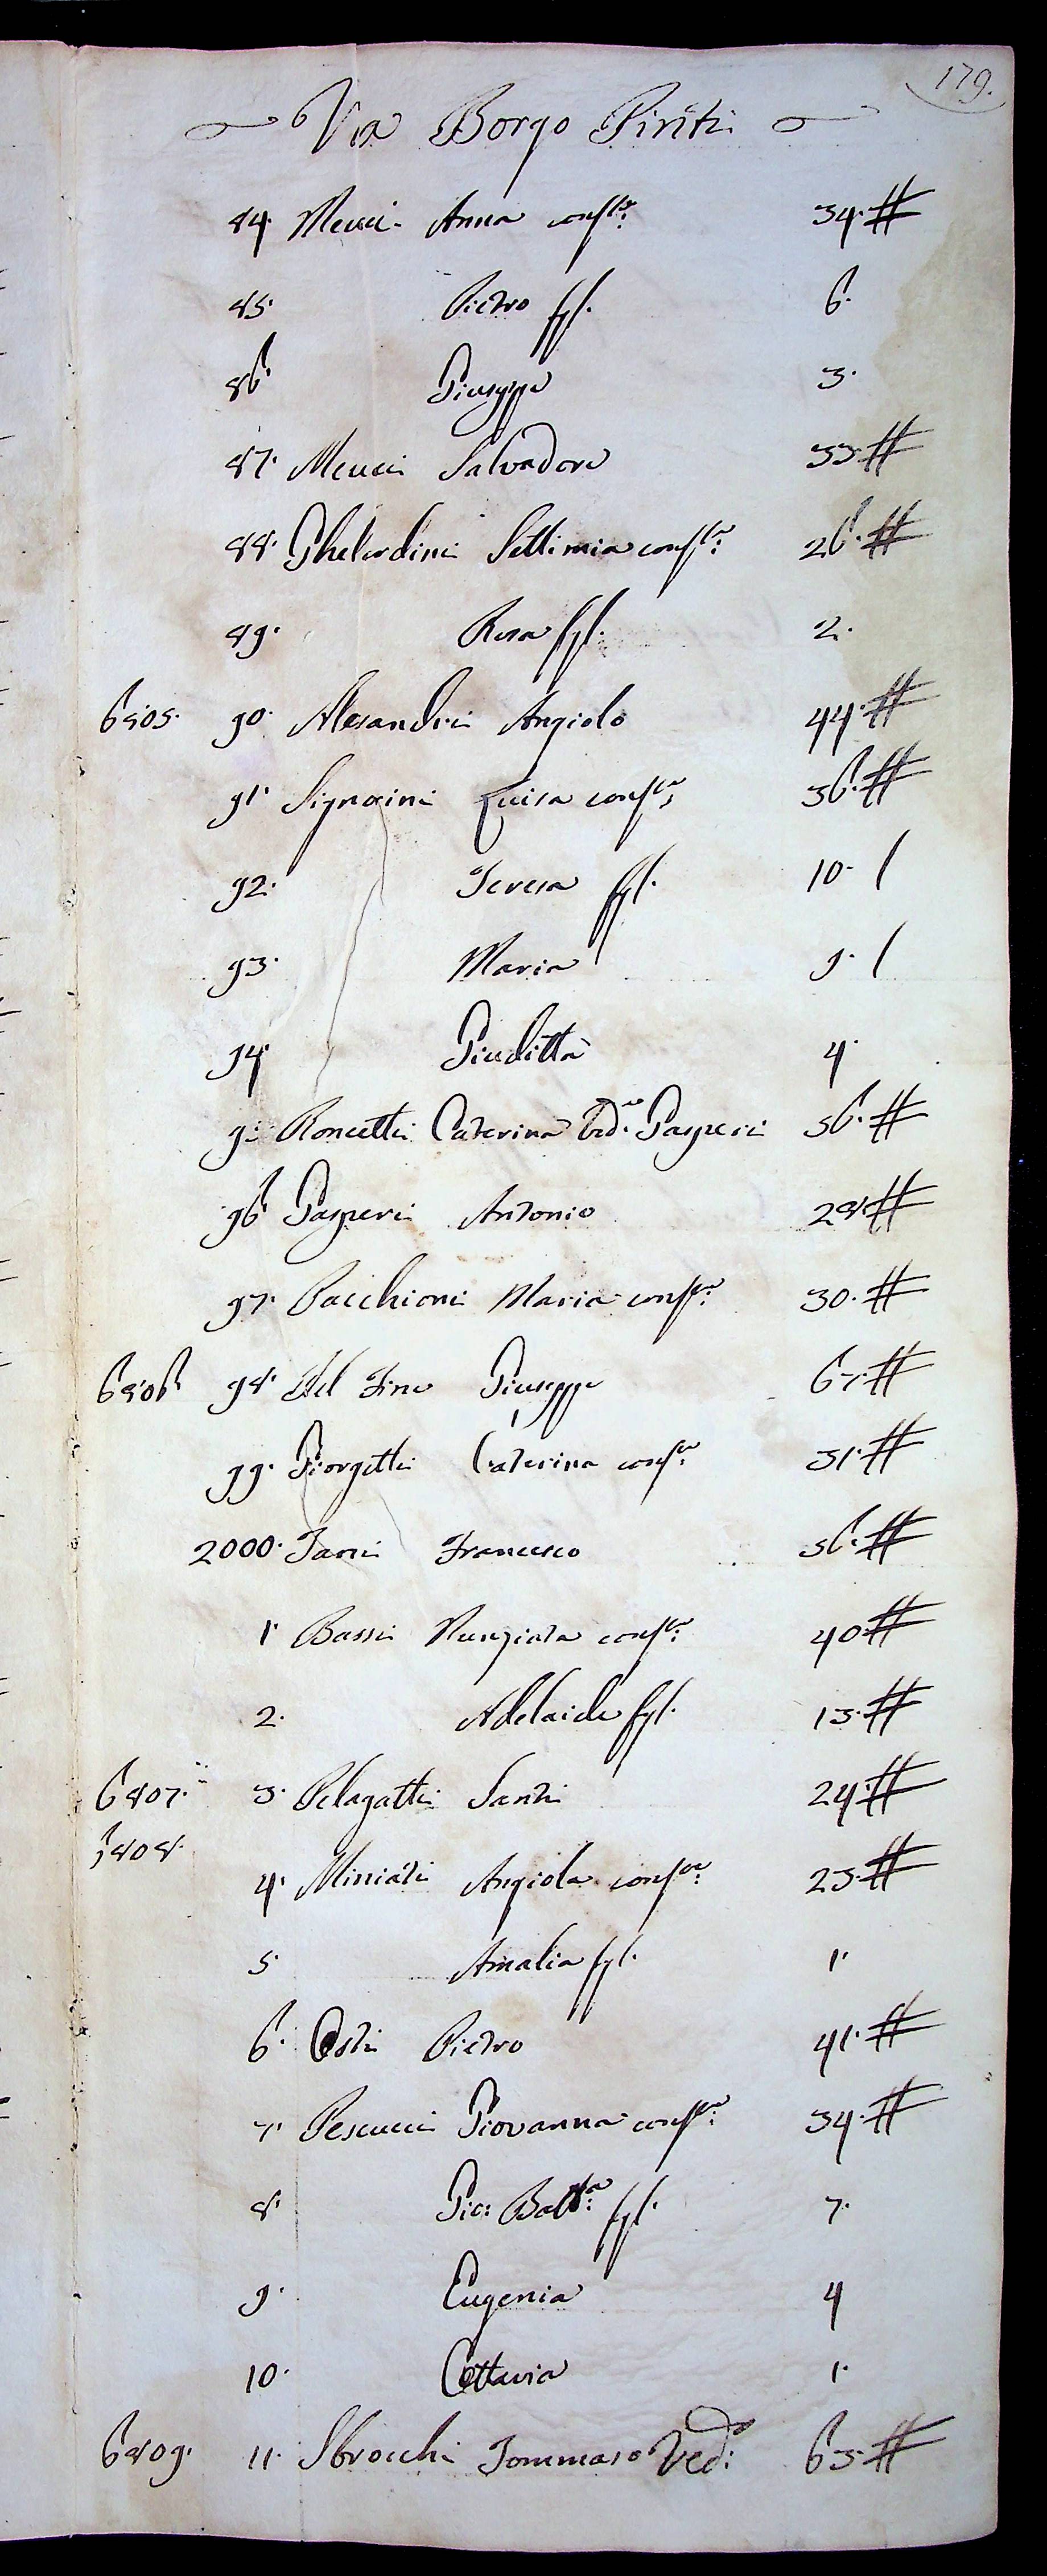 179.
Via Borgo Pinti
84. Meucci Anna cons.te 34. #
85. Pietro figl. 6.
86. Giuseppe 3.
87. Meucci Salvadore 33. #
88. Ghelardini Settimia cons.te 26. #
89. Rosa figl. 2.
6805. 90. Alesandri Angiolo 44. #
91. Signorini Luisa cons.te 36. #
92. Teresa figl. 10. /
93. Maria 9. /
94. Giuditta 4.
9 Roncetti Caterina Ved.a Gasperi 56. #
96. Gasperi Antonio 28. #
97. Pacchioni Maria cons.te 30. #
6806. 98. Del Fine Giuseppe 67. #
99. Giorgetti Caterina cons.te 31. #
2000. Tanni Francesco 36. #
1. Bassi Nunziata cons.te 40. #
2. Adelaide figl. 13. #
6807. 3. Pelagatti Santi 24. #
6808.
4. Miniati Angiola cons.te 23. #
5. Amalia figl. 1.
6. Osti Pietro 41. #
7. Pescucci Giovanna cons.te 34. #
8. Gio: Batt.a figl. 7.
9. Eugenia 4
10. Ottavia 1.
6809. 11. Sbrocchi Tommaso Ved.o 63. #